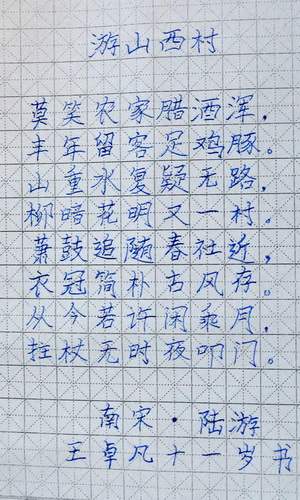 游山西村
莫笑农家腊酒浑,
丰年留客足鸡豚。
山重水复疑无路,
柳暗花明又一村。
萧鼓追随春社近,
衣冠简朴古风存。
从今若许闲乘月,
拄杖无时夜叩门。
南宋·陆游
王卓凡十一岁书